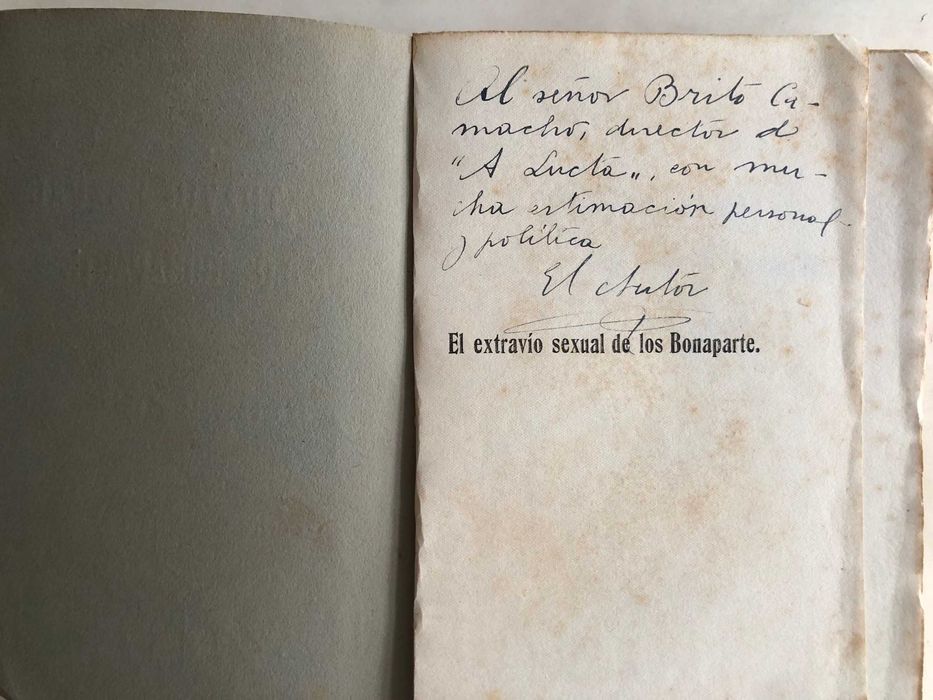 Al señor Brito Ca-
macho, director d
"A Lucta„, con mu-
cha estimación personal
y política
El Autor
El extravío sexual de los Bonaparte.